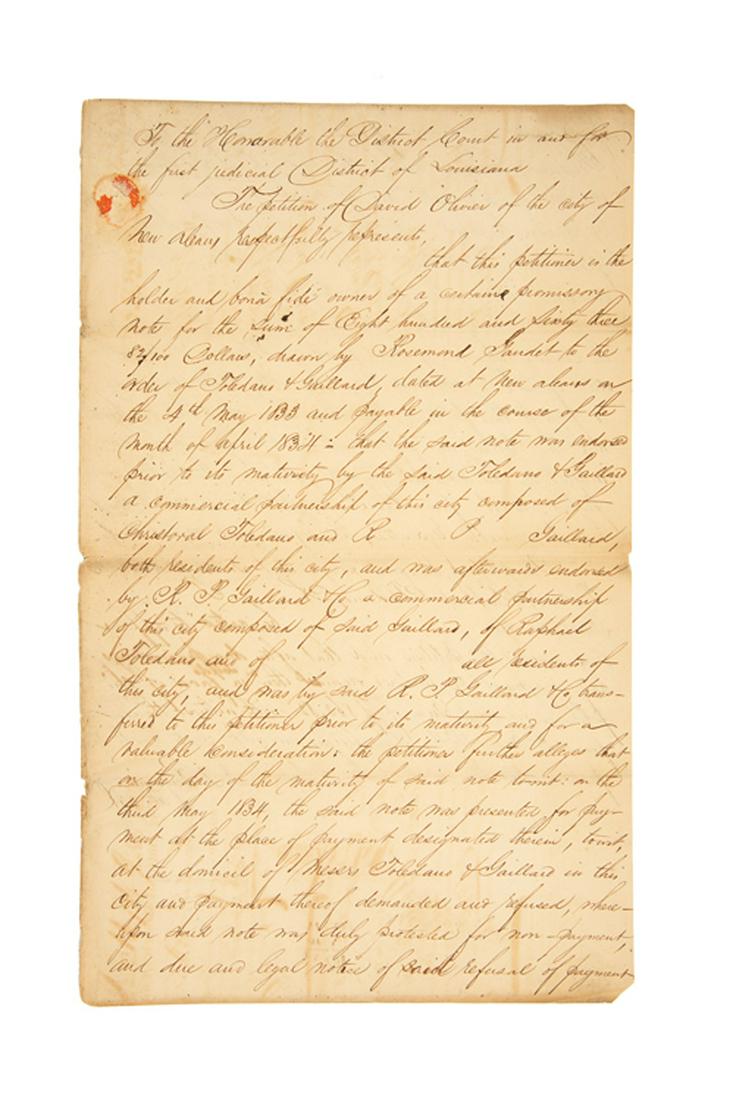 To the Honorable the District Court in and for
the first judicial District of Louisiana
The petition of David Olivier of the city of
New Orleans respectfully represents,
that this petitioner is the
holder and bona fide owner of a certain promissory
note for the sum of Eight hundred and sixty three
82/100 Dollars, drawn by Rosemond Gaudet to the
order of Toledano & Gaillard, dated at New Orleans on
the 4th May 1833 and payable in the course of the
month of april 1834: that the said note was endorsed
prior to its maturity by the said Toledano & Gaillard
a commercial partnership of this city composed of
Christoval Toledano and R P Gaillard,
both residents of this city, and was afterwards endorsed
by R. P. Gaillard & Co a commercial partnership
of this city composed of said Gaillard, of Raphael
Toledano and of all residents of
this city, and was by said R. P. Gaillard & Co trans-
ferred to this petitioner prior to its maturity and for a
valuable consideration: the petitioner further alleges that
on the day of the maturity of said note to wit: on the
third May 1834, the said note was presented for pay-
ment at the place of payment designated therein, towit,
at the domicil of Messrs Toledano & Gaillard in this
City and payment thereof demanded and refused, where-
upon said note was duly protested for non-payment,
and due and legal notice of said refusal of payment